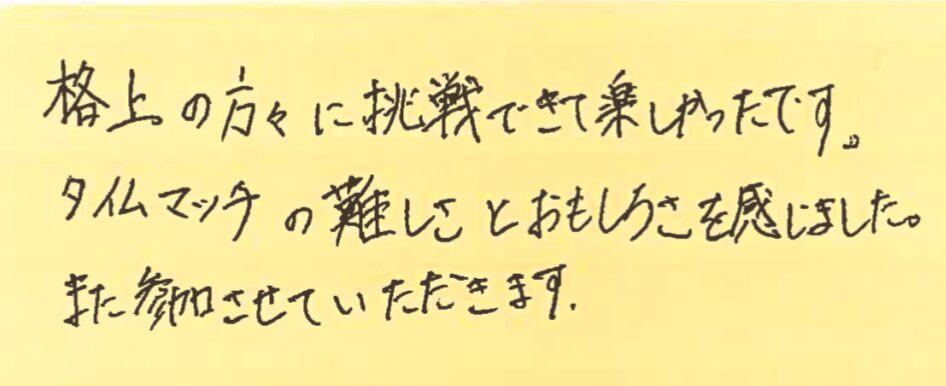 格上の方々に挑戦できて楽しかったです。
タイムマッチの難しさとおもしろさを感じました。
また参加させていただきます.